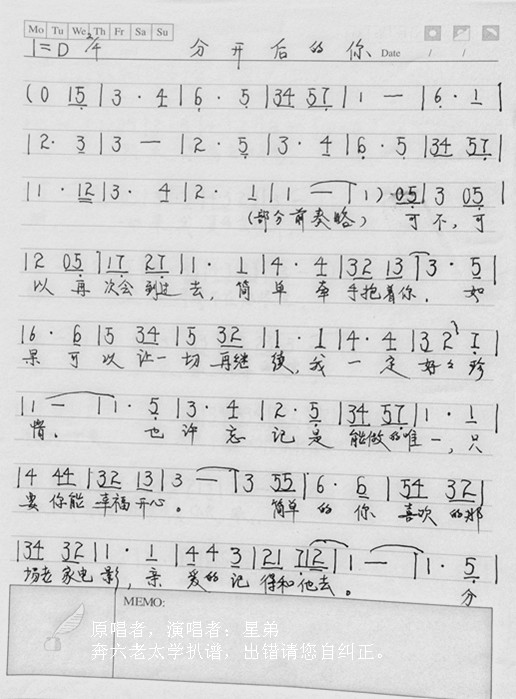 Mo Tu We Th Fr Sa Su
1=D 2/4 分开后的你 Date / /
(0 15 | 3 · 4 | 6 · 5 | 34 57 | 1 — | 6 · 1 |
| 2 · 3 | 3 — | 2 · 5 | 3 · 4 | 6 · 5 | 34 57 |
| 1 · 12 | 3 · 4 | 2 · 1 | 1 — | 1) 05 | 3 05 |
(部分前奏略) 可不,可
| 2 05 | 17 27 | 1 · 1 | 4 · 4 | 32 13 | 3 · 5 |
以 再 次会 到过 去, 简 单 牵 手抱着你. 如
| 6 · 6 | 5 34 | 5 32 | 1 · 1 | 4 · 4 | 3 2 1 |
果 可 以 让一 切 再继 续, 我 一 定 好々 珍
| 1 — | 1 · 5 | 3 · 4 | 2 · 5 | 34 57 | 1 · 1 |
惜. 也 许 忘 记 是 能做的唯 一, 只
| 4 44 | 32 13 | 3 — | 3 55 | 6 · 6 | 54 32 |
要 你能 幸福开心。 简单 的 你 喜欢 的那
| 34 32 | 1 · 1 | 4 4 3 | 21 712 | 1 — | 1 · 5 |
场老 家电 影, 亲 爱的 记 得和他去。 分
MEMO:
原唱者,演唱者:星弟
奔六老太学扒谱,出错请您自纠正。